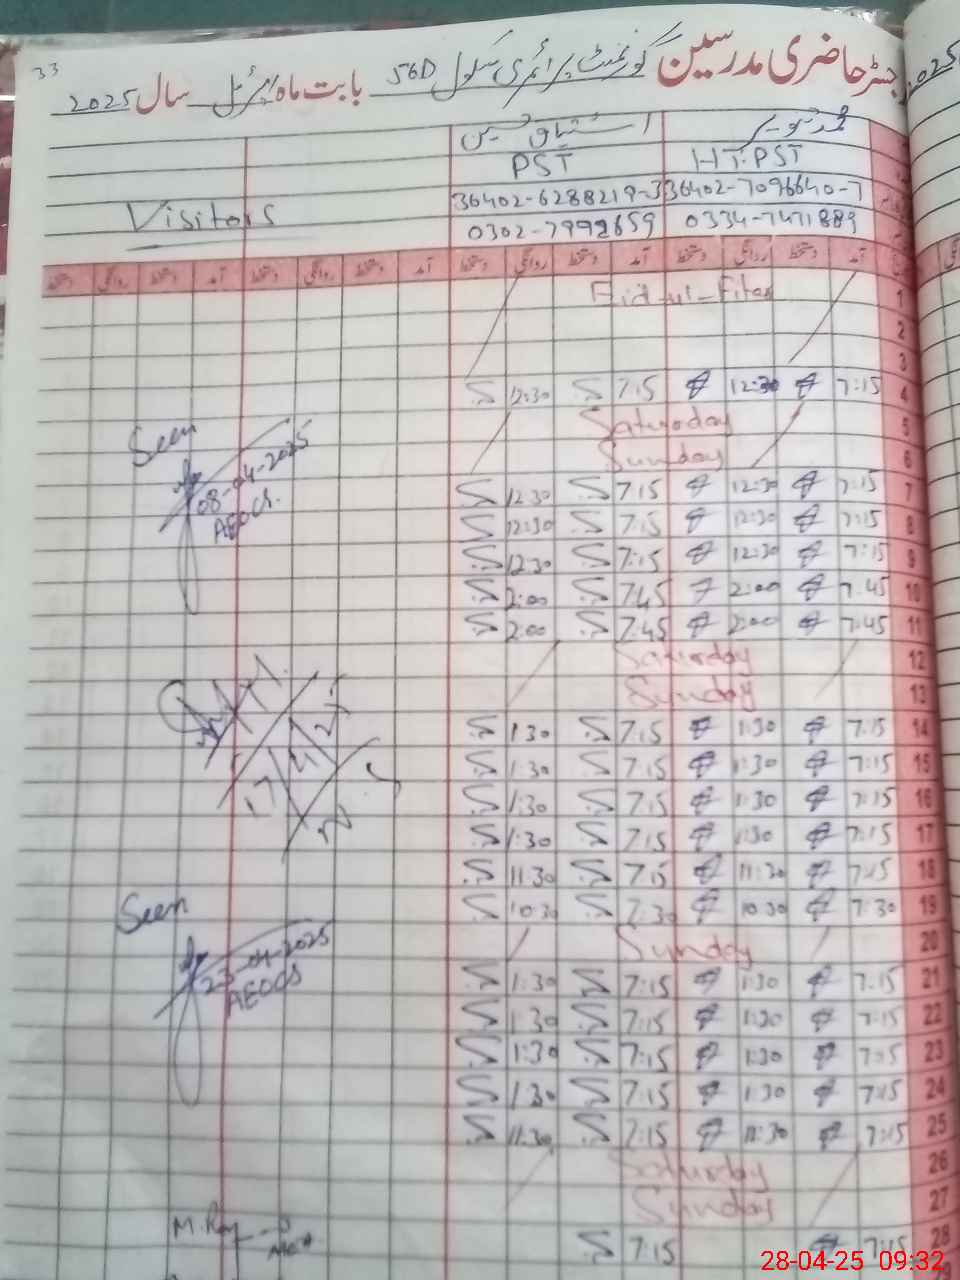 33
رجسٹر حاضری مدرسین گورنمنٹ پرائمری سکول 56D بابت ماہ اپریل سال 2025
2025
محمد تنویر اشتیاق حسین
HT:PST PST
36402-7096640-7 36402-6288219-3
0334-7471889 0302-7992659
Visitors
آمد دستخط روانگی دستخط آمد دستخط روانگی دستخط آمد دستخط روانگی دستخط آمد دستخط روانگی
1 Eid-ul-Fiter
2
3
4 7:15 12:30 7:15 12:30
5 Saturday
6 Sunday
7 7:15 12:30 7:15 12:30
8 7:15 12:30 7:15 12:30
9 7:15 12:30 7:15 12:30
10 7:45 2:00 7:45 2:00
11 7:45 2:00 7:45 2:00
12 Saturday
13 Sunday
14 7:15 1:30 7:15 1:30
15 7:15 1:30 7:15 1:30
16 7:15 1:30 7:15 1:30
17 7:15 1:30 7:15 1:30
18 7:15 11:30 7:15 11:30
19 7:30 10:30 7:30 10:30
20 Sunday
21 7:15 1:30 7:15 1:30
22 7:15 1:30 7:15 1:30
23 7:15 1:30 7:15 1:30
24 7:15 1:30 7:15 1:30
25 7:15 11:30 7:15 11:30
26 Saturday
27 Sunday
28 7:15 7:15
29
Seen
08-04-2025
AEO
17/4/25
Seen
23-04-2025
AEO
28-04-25 09:32